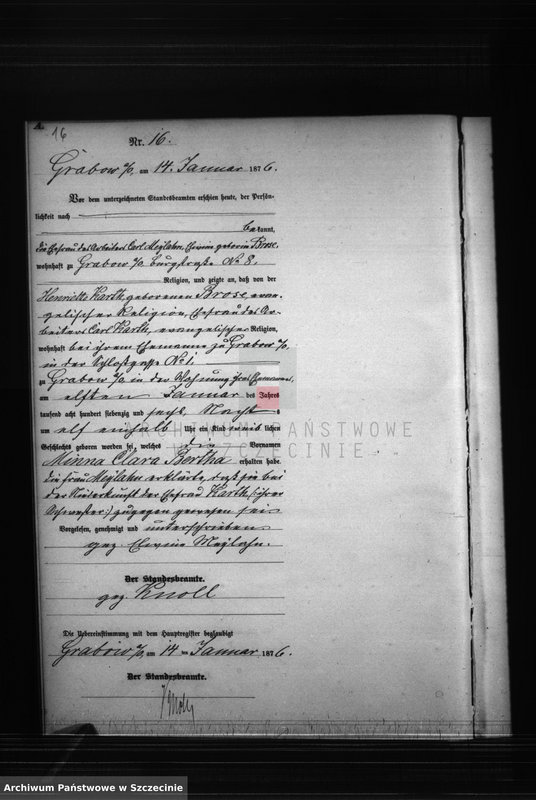 A.
16
Nr. 16.
Grabow a/O, am 14. Januar 1876.
Vor dem unterzeichneten Standesbeamten erschien heute, der Persön-
lichkeit nach
bekannt,
die Ehefrau des Arbeiters Carl Meylahn, geborene Brose,
wohnhaft zu Grabow a/O Burgstraße No 8,
Religion, und zeigte an, daß von der
Henriette Karth geborenen Brose, evan-
gelischer Religion, Ehefrau des Ar-
beiters Carl Karth, evangelischer Religion,
wohnhaft bei ihrem Ehemanne zu Grabow a/O,
in der Schloßgasse No 1,
zu Grabow a/O in der Wohnung ihres Ehemannes,
am elften Januar des Jahres
tausend acht hundert siebenzig und sechs, Nachts
um elf einhalb Uhr ein Kind weiblichen
Geschlechts geboren worden sei, welches die Vornamen
Minna Clara Bertha erhalten habe.
Die Frau Meylahn erklärte, daß sie bei
der Niederkunft der Ehefrau Karth (:ihrer
Schwester:) zugegen gewesen sei
Vorgelesen, genehmigt und unterschrieben
gez. Meylahn.
Der Standesbeamte.
gez. Knoll
Die Uebereinstimmung mit dem Hauptregister beglaubigt
Grabow a/O, am 14 ten Januar 1876.
Der Standesbeamte.
Knoll
ARCHIWUM PAŃSTWOWE
W SZCZECINIE
Archiwum Państwowe w Szczecinie